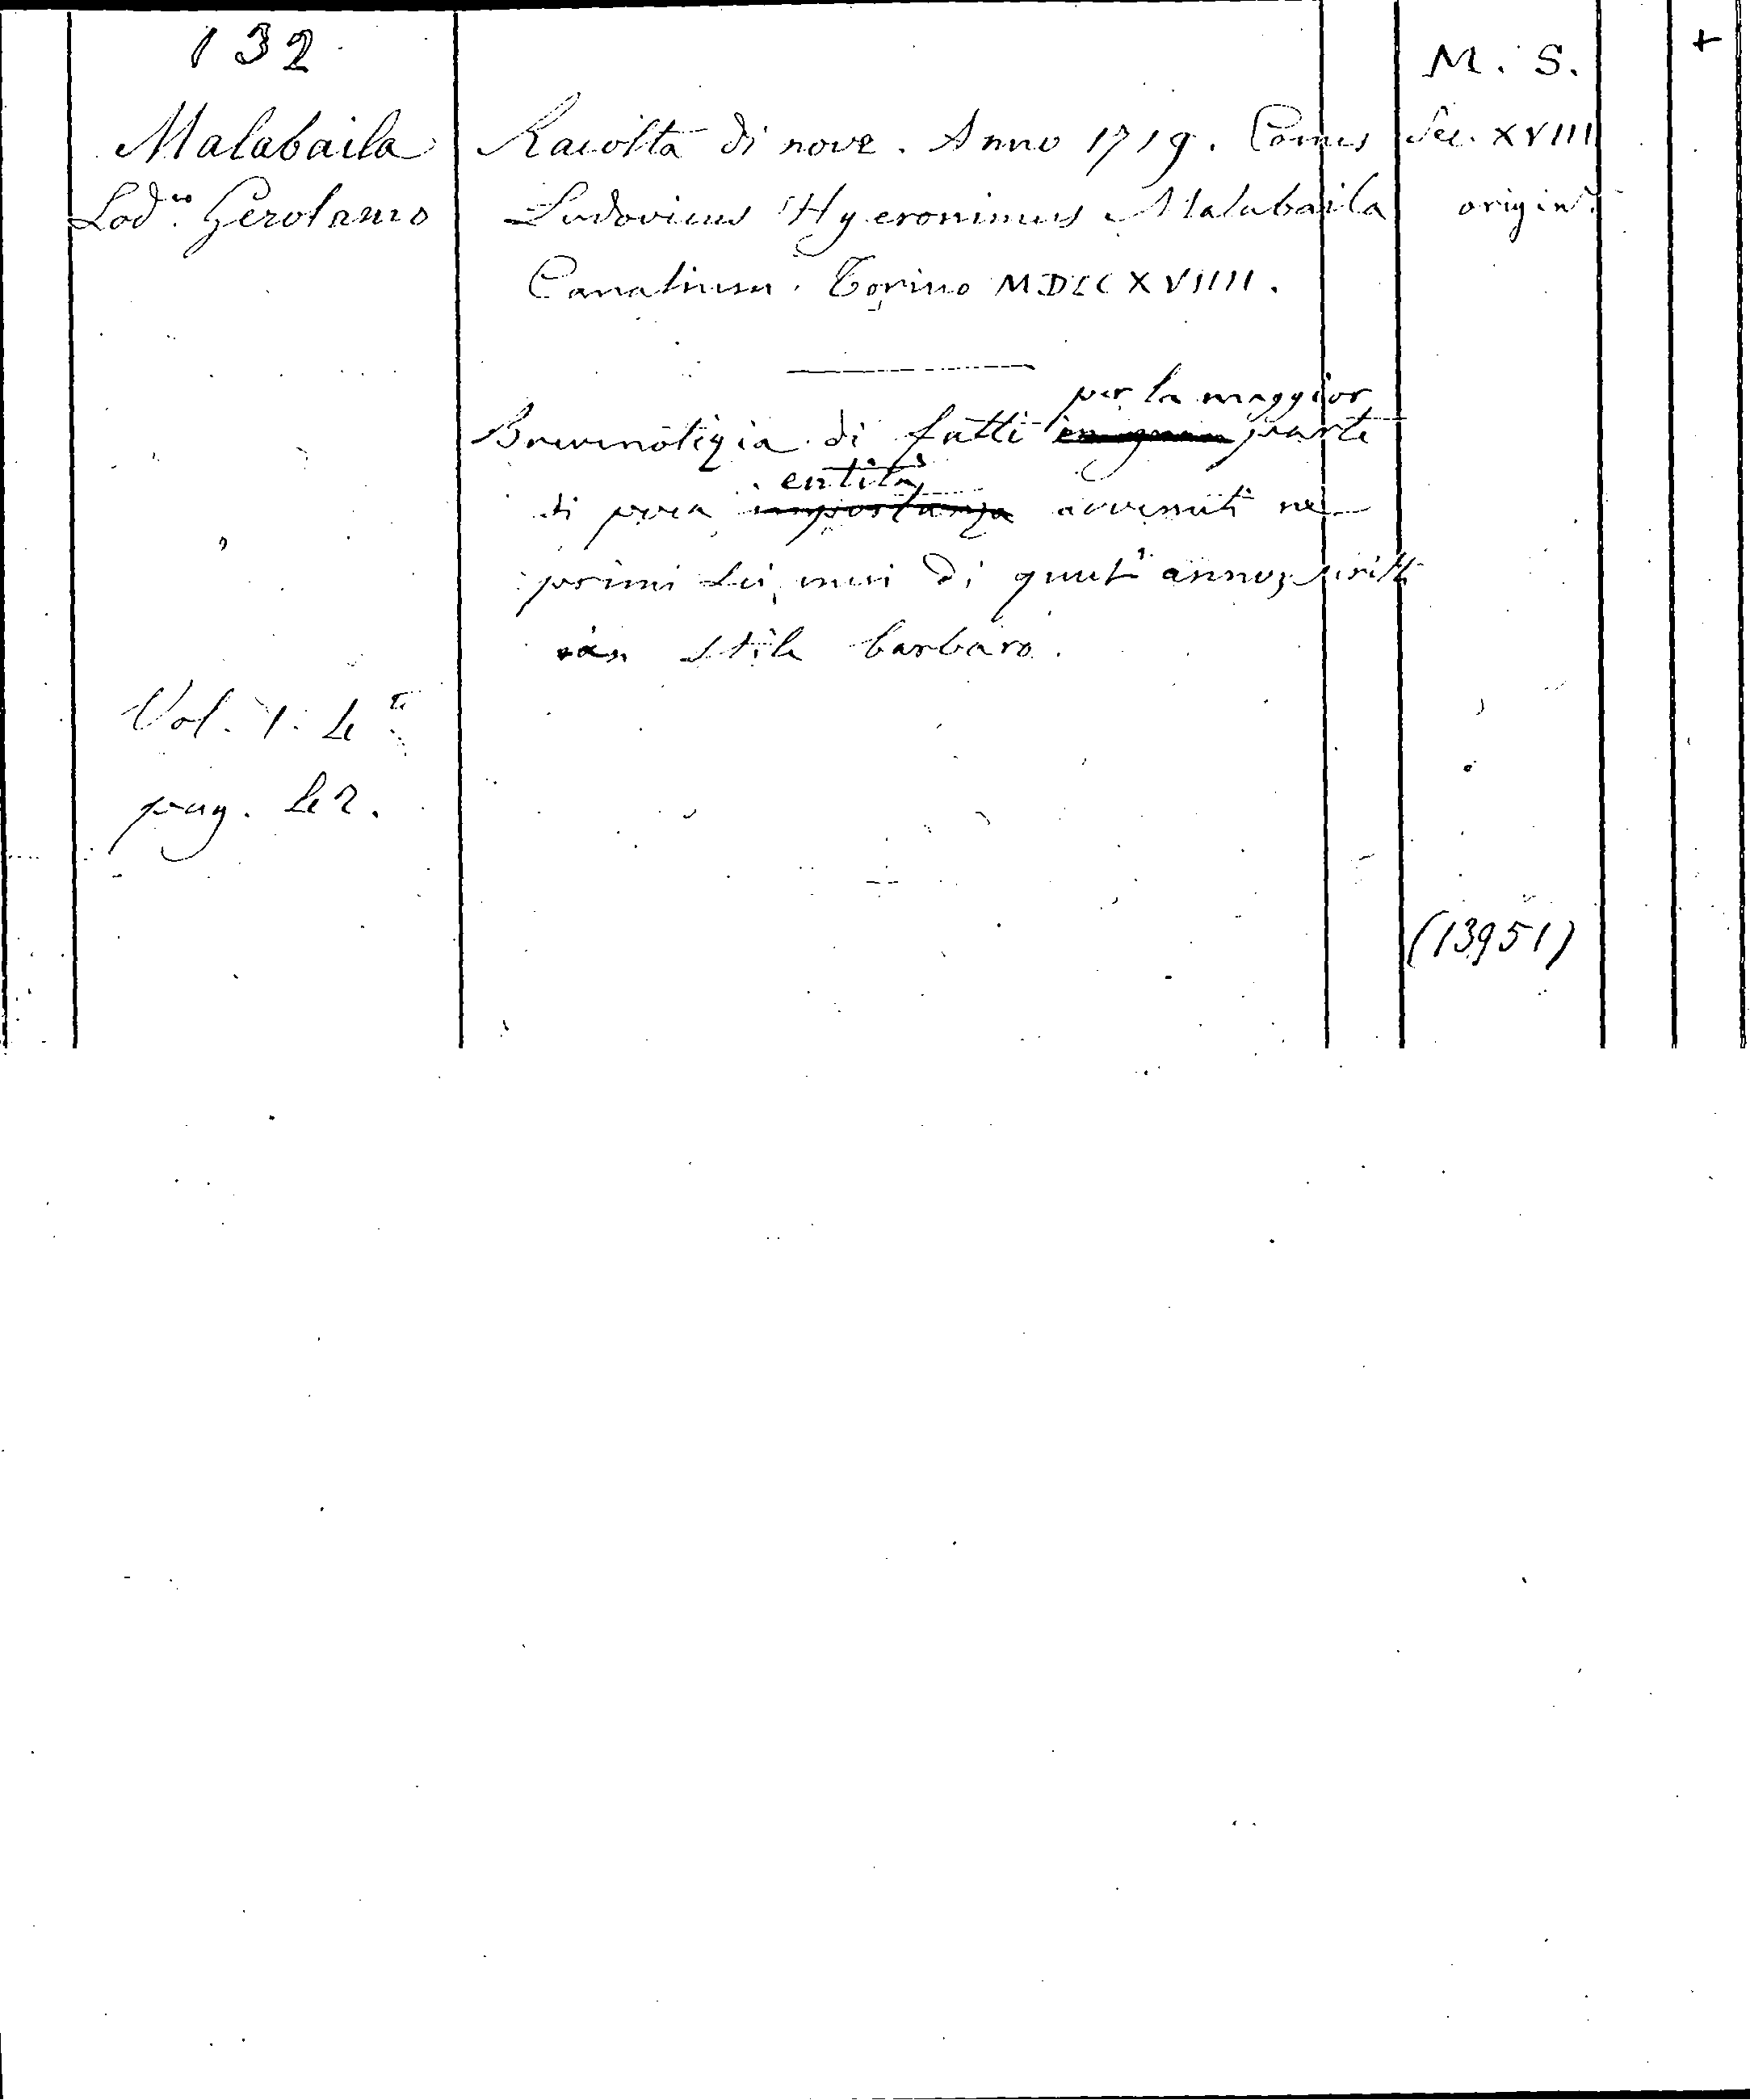 132
Malabaila
Lod.co Gerolamo
Vol. 1. 4to
pag. 42.
Racolta di nove. Anno 1719. Comes
Ludovicus Hyeronimus Malabaila
Canalium. Torino MDCCXVIIII.
per la maggior
Breve notizia di fatti in gran parte
entità
di poca importanza avvenuti ne
primi sei mesi di quest' anno, scritti
con stile barbaro.
M. S.
Sec. XVIII
origin.
(13951)
+